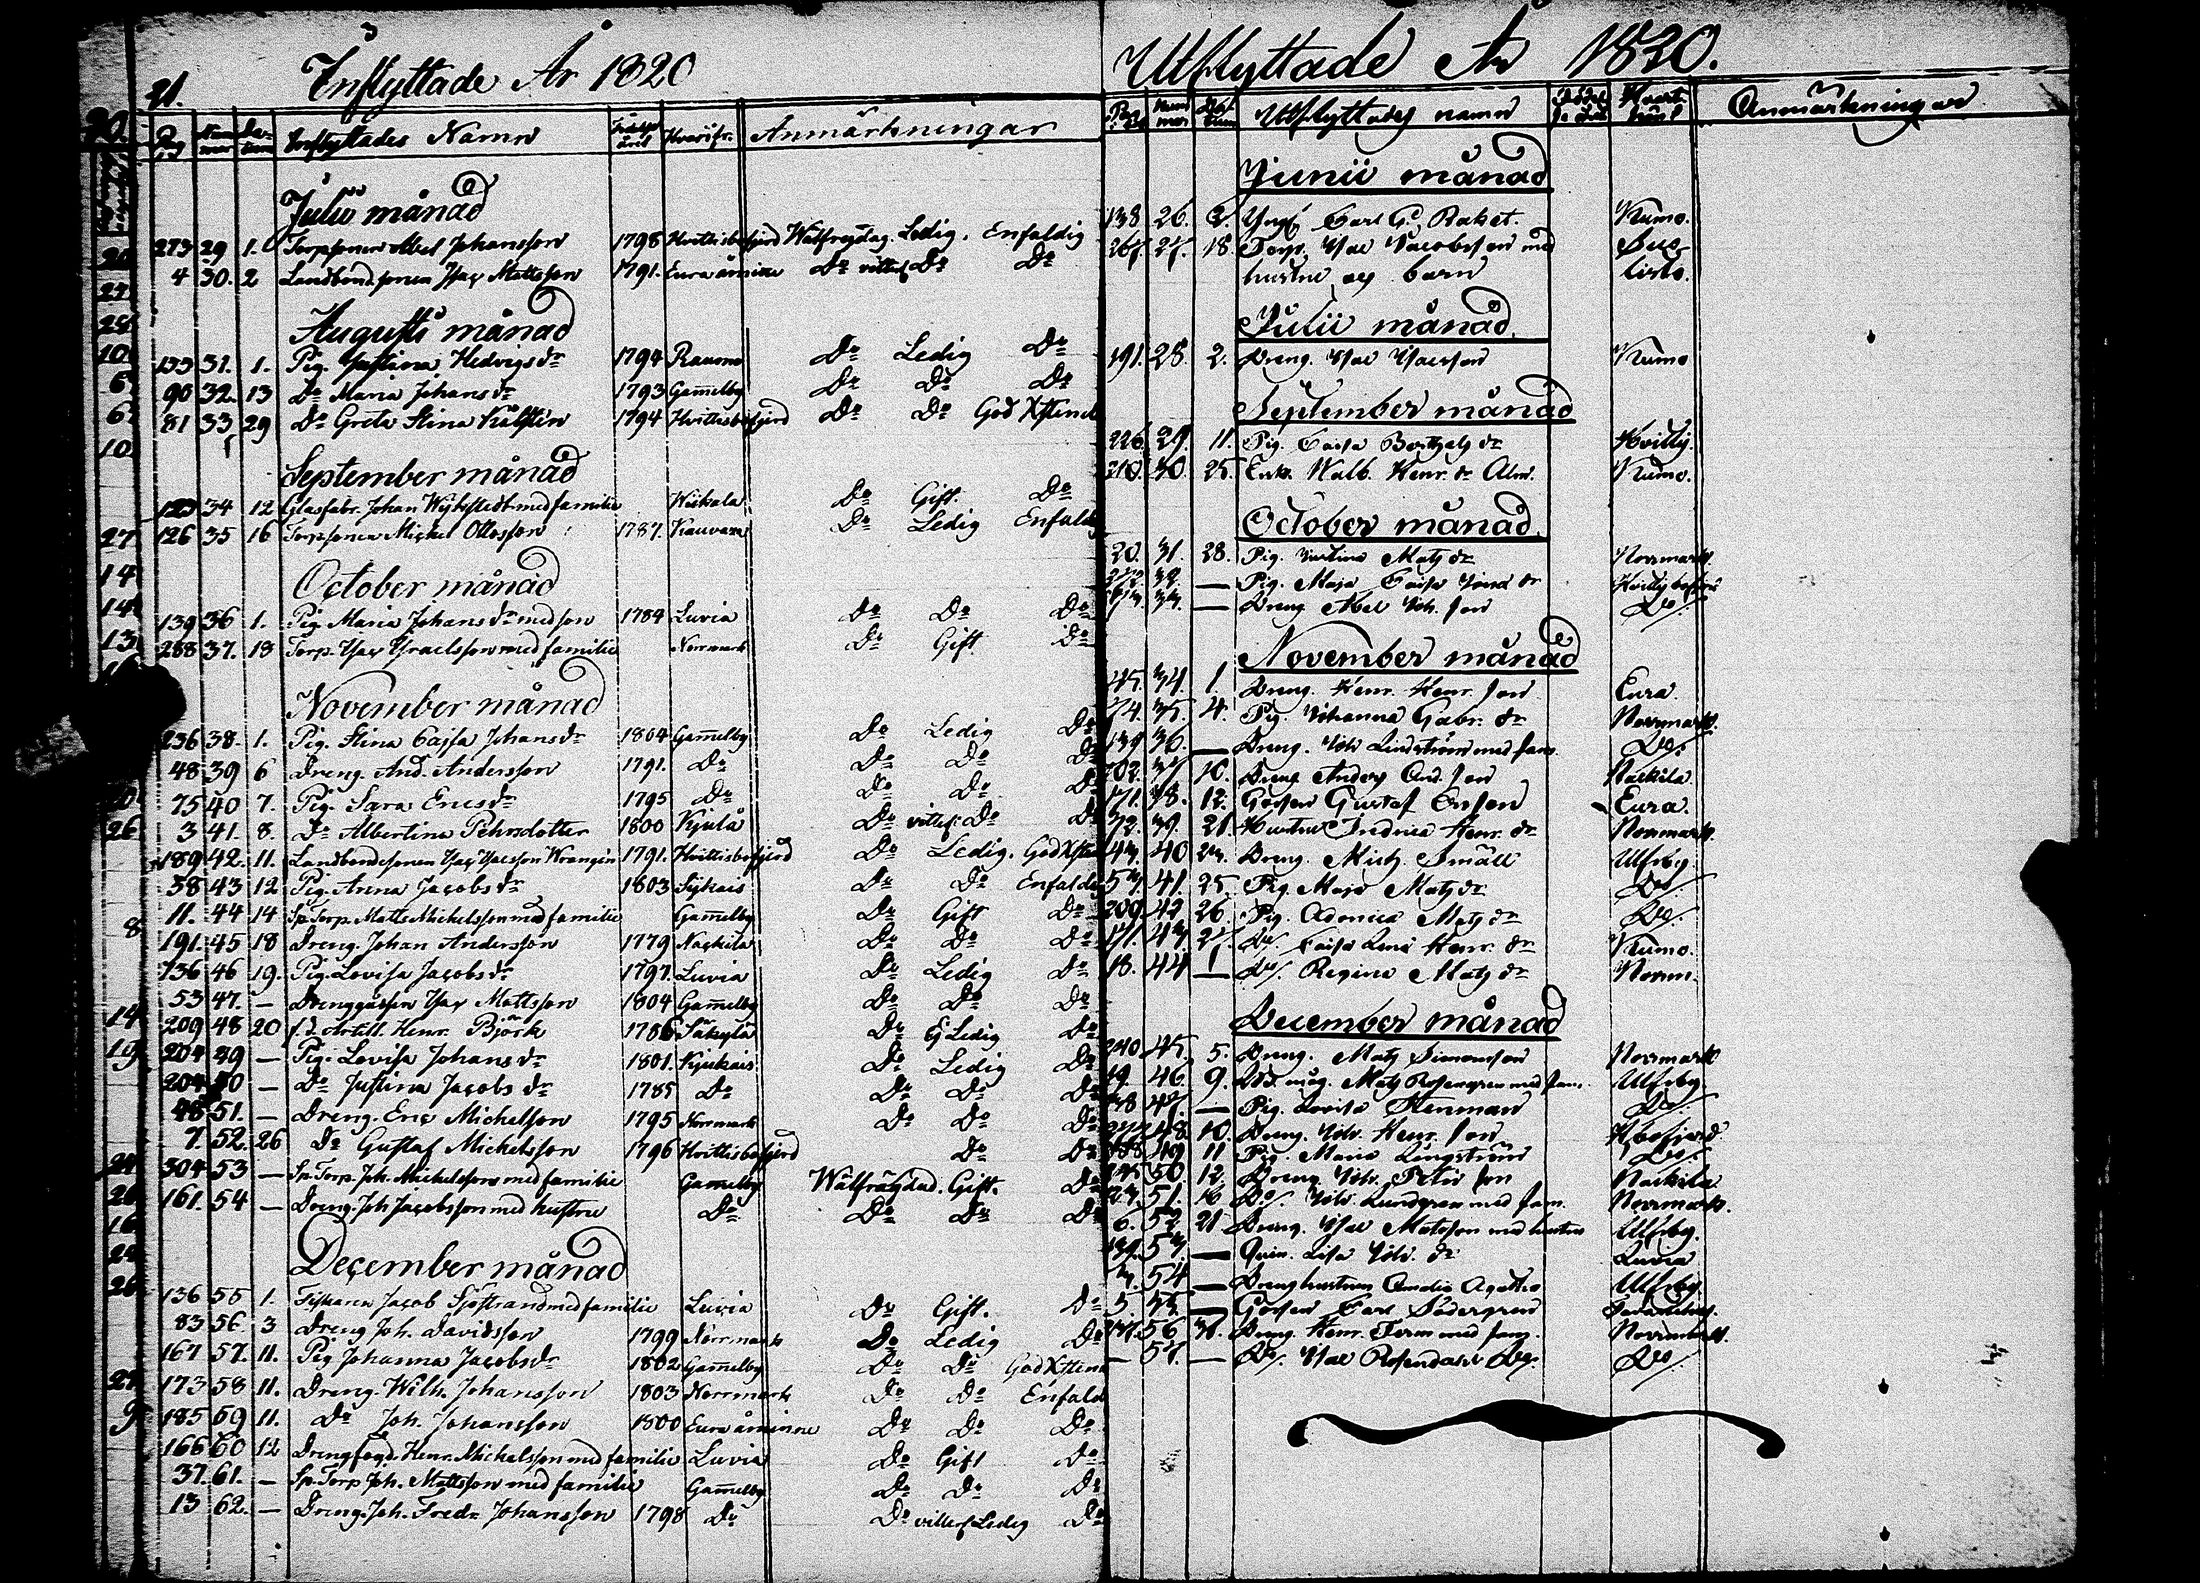 Inflyttade År 1820
21.
Pag Num̄er Datum Inflyttades Namn Födelse året Hvarifr. Anmärkningar
Julii månad
273 29 1. Torpsonen Abel Johansson 1798 Hvittisbofjerd Wälfrejdag. Ledig. Enfaldig
4 30. 2 Landbond.sonen Isac Mattsson 1791. Eura åminne Do vittsf Do Do
Augusti månad
133 31. 1. Pig. Justina Hedvigsdr 1794 Raumo Do Ledig Do
90 32. 13 Do Maria Johansdr 1793 Gam̄elby Do Do Do
81 33 29 Do Greta Stina 1794 Hvittisbofjerd Do Do God Xstend
September månad
123 34 12 Glasfabr. Johan med familie Wiskala Do Gift. Do
126 35 16 Torpsonen Michel Ottosson 1787. Kauvatsa Do Ledig Enfald
October månad
139 36 1. Pig. Maria Johansdr med son 1784 Luvia Do Do Do
288 37. 13 Torp. Isac Israelsson med familie Norrmark Do Gift Do
November månad
236 38. 1. Pig. Stina Cajsa Johansdr 1804 Gam̄elby Do Ledig Do
48 39 6 Dreng. And. Andersson 1791. Do Do Do Do
75 40 7. Pig. Sara Ericsdr 1795 Do Do Do Do
3 41. 8. Do Albertina Pehrsdotter 1800 Kjulå Do vittsf: Do Do
189 42. 11. Landbondesonen Isac Isacsson 1791. Hvittisbofjerd Do Ledig. God Xsten
58 43 12 Pig. Anna Jacobsdr 1803 Do Do Enfaldig
11. 44 14 Sp. Torp. Matts Michelsson med familie Gam̄elby Do Gift Do
191. 45 18 Dreng. Johan Andersson 1779 Nackila Do Do Do
136 46 19. Pig. Lovisa Jacobsdr 1797. Luvia Do Ledig Do
53 47. — Drenggåssen Isac Mattsson 1804 Gam̄elby Do Do Do
209 48 20 f.d. Artill. Henr. Björk 1786 Säkylä Do Ej Ledig Do
204 49 — Pig. Lovisa Johansdr 1801. Kjukais Do Ledig Do
204 50 — Do Justina Jacobsdr 1785 Do Do Do Do
48 51. — Dreng. Eric Michelsson 1795 Norrmark Do Do Do
7. 52. 26 Do Gustaf Michelsson 1796 Hvittisbofjerd Do Do
304 53 — Sp. Torp. Joh. Michelsson med familie Gam̄elby Wälfräjdad. Gift. Do
161. 54 — Dreng. Joh. Jacobsson med hustru Do Do Do Do
December månad
136 55 1. Fiskaren Jacob Sjöstrand med familie Luvia Do Gift. Do
83 56. 3 Dreng Joh. Davidsson 1799 Norrmark Do Ledig Do
167 57. 11. Pig Johanna Jacobsdr 1802 Gam̄elby Do Do God Xstend
173 58 11. Dreng. Wilh. Johansson 1803 Norrmark Do Do Enfald
185 59 11. Do Joh. Johansson 1800 Eura åminne Do Do Do
166 60 12 Drengfogd. Henr. Michelsson med familie Luvia Do Gift Do
37. 61. — Sp. Torp. Joh. Mattsson med familie Gam̄elby Do Do Do
13 62. — Dreng. Joh. Fredr. Johansson 1798 Do Do vittsf Ledig Do
Utflyttade År 1820.
Num̄er Datum Utflyttades namn Hvart Anmärkningar
Junii månad
138 26. 2. Carl G. Raket. Kumo.
267. 27. 18. Torp. Isac Jacobsson med
hustru og barn
Julii månad.
191. 28. 2. Dreng. Isac Isacsson Kumo
September månad
226. 29. 11. Pig. Caisa Hvittis.
210. 30. 25. Enk. Walb. Henr. dr Kumo.
October månad.
20. 31. 28. Pig. Justina Mats dr Norrmark
32. — Pig. Maja Caisa dr Hvittisbofjerd
33. — Dreng Abel Joh. son Do.
November månad
34. 1. Dreng. Henr. Henr. son Eura.
74. 35. 4. Pig. Johanna Gabr. dr Norrmark.
139. 36. — Dreng. Joh. Lindström med fam. Do.
202. 37. 10. Dreng Anders And. son Nackila.
171. 38. 12. Gossen Gustaf Ersson Eura.
72. 39. 21. Hustru Fredrica Henr. dr Norrmark.
43. 40 23. Dreng. Mich. Småll Ulfsby.
53. 41. 25. Pig. Maja Mats dr Do.
209. 42 26. Pig. Mats dr Do.
171. 43. 27. Do. Caisa Lena Henr. dr Kumo.
18. 44 — Do. Regina Mats dr Norrm.
December månad
240 45. 5. Dreng. Mats Simonsson Norrmark
19. 46. 9. Mats Rosengren med fam. Ulfsby
38 47. — Pig. Lovisa Stenman Do.
272 48. 10. Dreng. Joh. Henr. son H.bofierd.
188 49 11 Pig. Maria Do.
50. 12. Dreng. Joh. Petter son Nackila
123. 51. 16 Do. Joh. Lundgren med fam. Norrmark.
6. 52. 21 Dreng. Isac Matsson med hustru Ulfsby.
139. 53. — Lisa Joh. dr Luvia
3. 54 — Drenghustrun Amalia Agatha Ulfsby.
5. 55. — Gossen Carl Södergren
237. 56 31. Dreng. Henr. med fam. Norrmark.
— 57. — Do. Isac Rosendahl Do. Do.